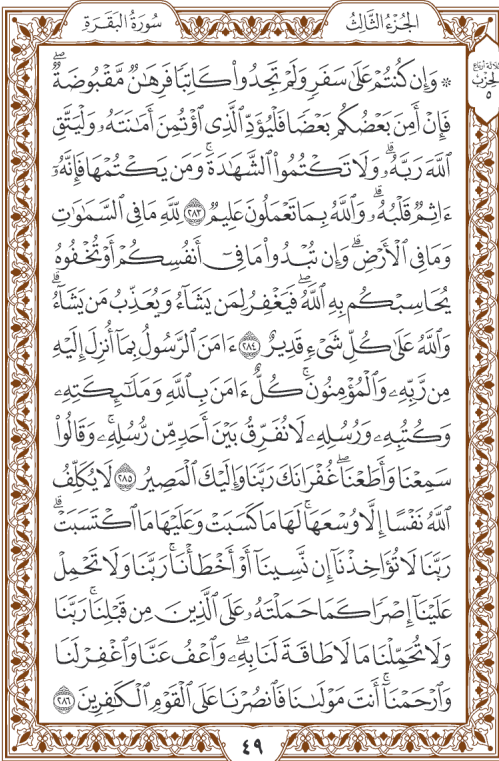 سُورَةُ البَقَرَةِ
الجُزْءُ الثَّالِثُ
ثلاثة أرباع
الحزب
٥
۞ وَإِن كُنتُمْ عَلَىٰ سَفَرٍ وَلَمْ تَجِدُواْ كَاتِبًا فَرِهَٰنٌ مَّقْبُوضَةٌۖ
فَإِنْ أَمِنَ بَعْضُكُم بَعْضًا فَلْيُؤَدِّ الَّذِي اؤْتُمِنَ أَمَٰنَتَهُۥ وَلْيَتَّقِ
اللَّهَ رَبَّهُۥۗ وَلَا تَكْتُمُواْ الشَّهَٰدَةَۚ وَمَن يَكْتُمْهَا فَإِنَّهُۥٓ
ءَاثِمٌ قَلْبُهُۥۗ وَاللَّهُ بِمَا تَعْمَلُونَ عَلِيمٌ ٢٨٣ لِّلَّهِ مَا فِي السَّمَٰوَٰتِ
وَمَا فِي الْأَرْضِۗ وَإِن تُبْدُواْ مَا فِيٓ أَنفُسِكُمْ أَوْ تُخْفُوهُ
يُحَاسِبْكُم بِهِ اللَّهُۖ فَيَغْفِرُ لِمَن يَشَآءُ وَيُعَذِّبُ مَن يَشَآءُۗ
وَاللَّهُ عَلَىٰ كُلِّ شَيْءٍ قَدِيرٌ ٢٨٤ ءَامَنَ الرَّسُولُ بِمَآ أُنزِلَ إِلَيْهِ
مِن رَّبِّهِۦ وَالْمُؤْمِنُونَۚ كُلٌّ ءَامَنَ بِاللَّهِ وَمَلَٰٓئِكَتِهِۦ
وَكُتُبِهِۦ وَرُسُلِهِۦ لَا نُفَرِّقُ بَيْنَ أَحَدٍ مِّن رُّسُلِهِۦۚ وَقَالُواْ
سَمِعْنَا وَأَطَعْنَاۖ غُفْرَانَكَ رَبَّنَا وَإِلَيْكَ الْمَصِيرُ ٢٨٥ لَا يُكَلِّفُ
اللَّهُ نَفْسًا إِلَّا وُسْعَهَاۚ لَهَا مَا كَسَبَتْ وَعَلَيْهَا مَا اكْتَسَبَتْۗ
رَبَّنَا لَا تُؤَاخِذْنَآ إِن نَّسِينَآ أَوْ أَخْطَأْنَاۚ رَبَّنَا وَلَا تَحْمِلْ
عَلَيْنَآ إِصْرًا كَمَا حَمَلْتَهُۥ عَلَى الَّذِينَ مِن قَبْلِنَاۚ رَبَّنَا
وَلَا تُحَمِّلْنَا مَا لَا طَاقَةَ لَنَا بِهِۦۖ وَاعْفُ عَنَّا وَاغْفِرْ لَنَا
وَارْحَمْنَآۚ أَنتَ مَوْلَىٰنَا فَانصُرْنَا عَلَى الْقَوْمِ الْكَٰفِرِينَ ٢٨٦
٤٩